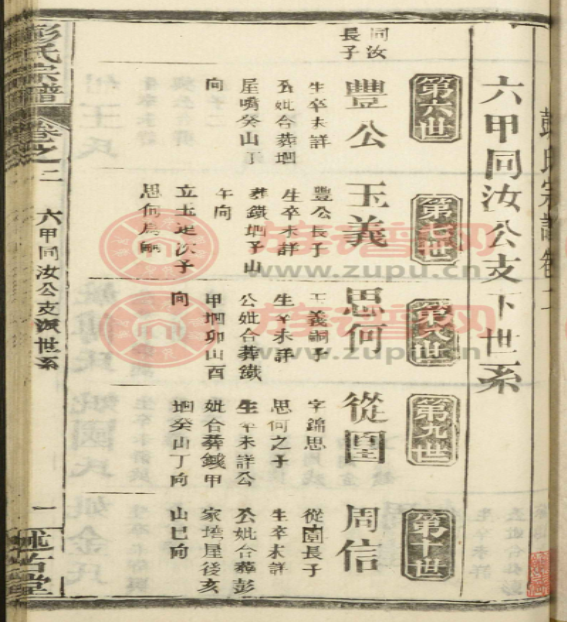 彭氏宗譜卷二
六甲同汝公支下世系
第六世
第七世
第八世
第九世
第十世
同汝
長子
豐公
生卒未詳
公妣合葬堋
屋嘴癸山丁
向
玉義
豐公長子
生卒未詳
葬鐵堋子山
午向
立士廷次子
思何爲嗣
思何
玉義嗣子
生卒未詳
公妣合葬鐵
甲堋卯山酉
向
從圍
字錦思
思何之子
生卒未詳公
妣合葬鐵甲
堋癸山丁向
周信
從圍長子
生卒未詳
公妣合葬彭
家墥屋後亥
山巳向
彭氏宗譜
卷之二
六甲同汝公支派世系
一
述古堂
族譜網
www.zupu.cn
族譜網
www.zupu.cn